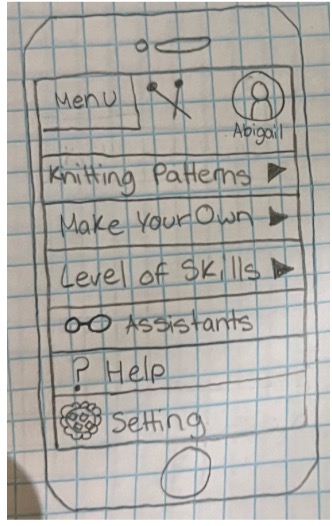 Menu
Abigail
Knitting Patterns
Make Your Own
Level of Skills
Assistants
? Help
Setting